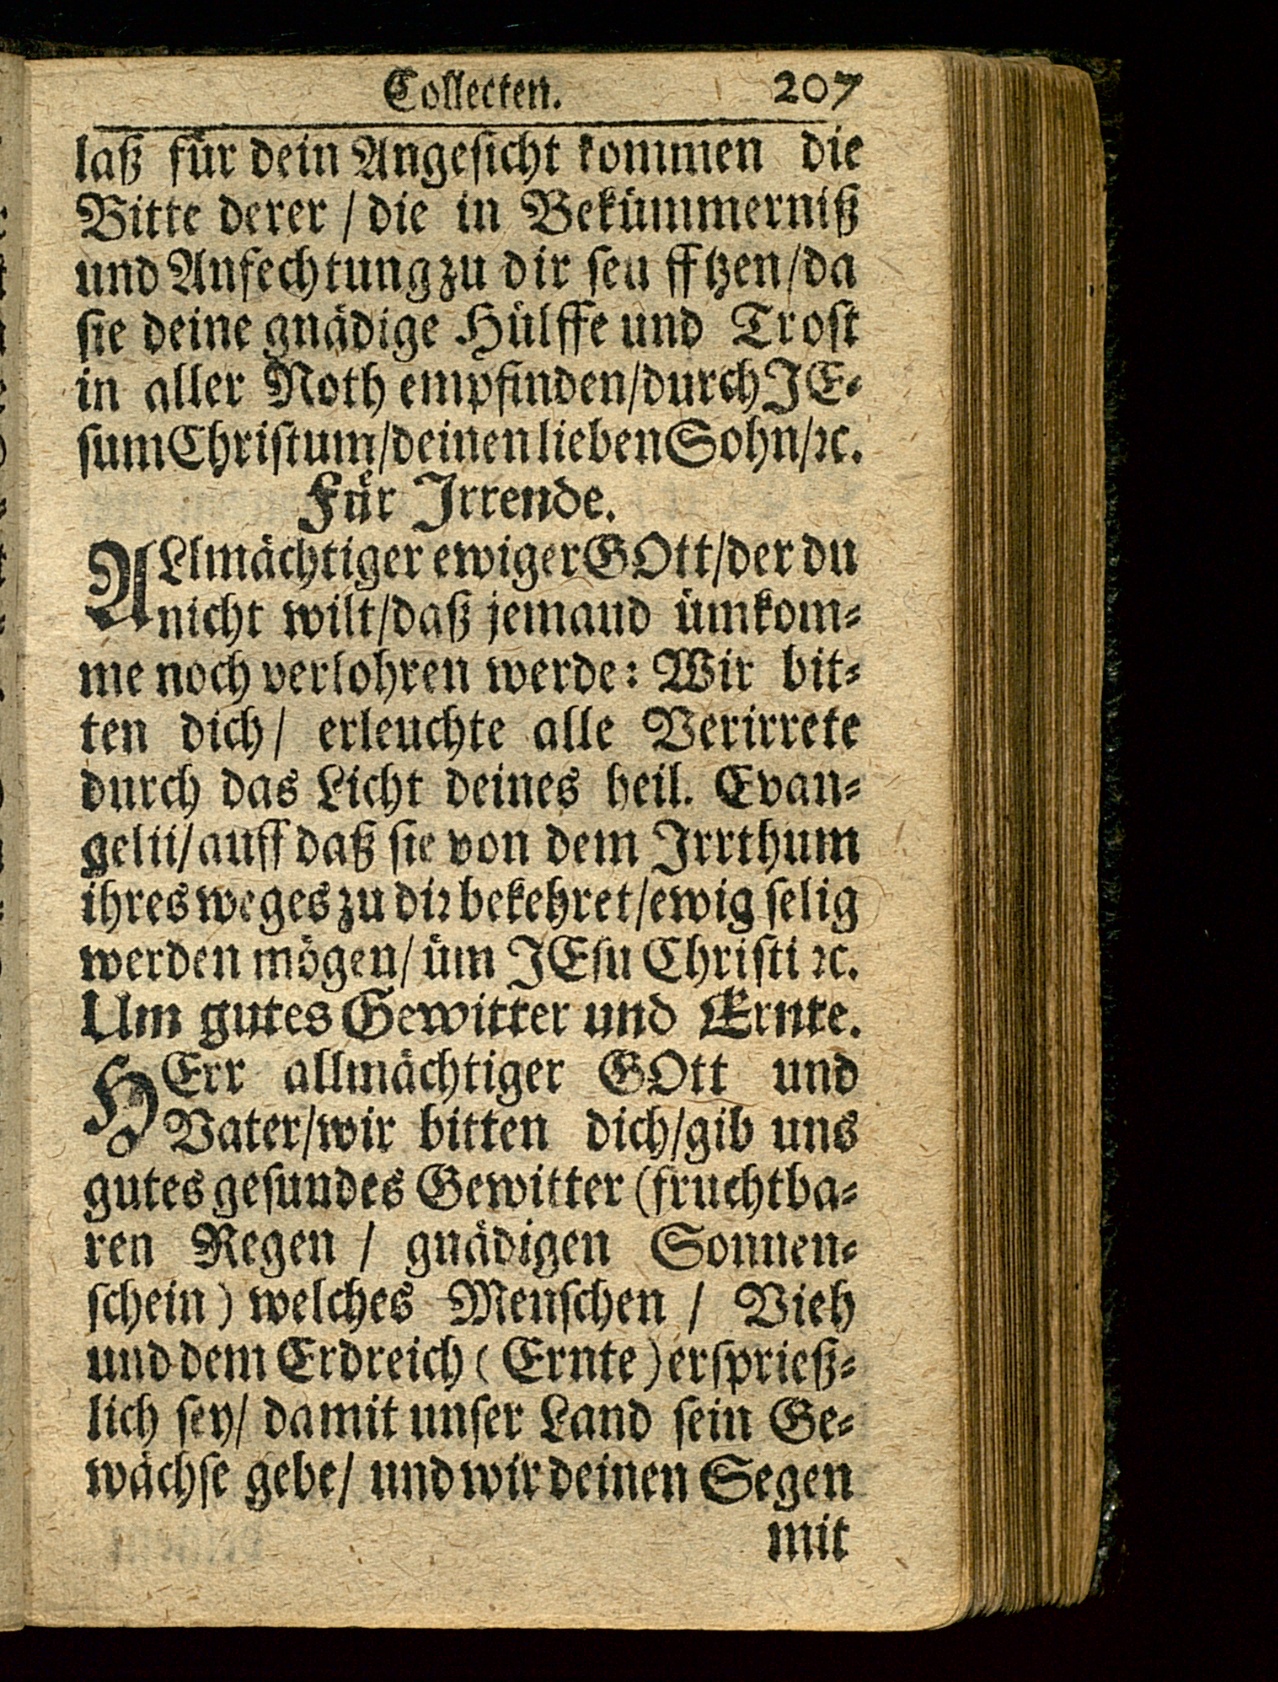 Collecten. 207
laß für dein Angesicht kommen die
Bitte derer / die in Bekümmerniß
und Anfechtung zu dir seufftzen/da
sie deine gnädige Hülffe und Trost
in aller Noth empfinden/durch JE-
sum Christum/deinen lieben Sohn/ꝛc.
Für Irrende.
ALlmächtiger ewiger GOtt/der du
nicht wilt/daß jemand ümkom-
me noch verlohren werde: Wir bit-
ten dich/ erleuchte alle Verirrete
durch das Licht deines heil. Evan-
gelii/auff daß sie von dem Irrthum
ihres weges zu dir bekehret/ewig selig
werden mögen/üm JEsu Christi ꝛc.
Um gutes Gewitter und Ernte.
HErr allmächtiger GOtt und
Vater/wir bitten dich/gib uns
gutes gesundes Gewitter (fruchtba-
ren Regen / gnädigen Sonnen-
schein) welches Menschen / Vieh
und dem Erdreich (Ernte) ersprieß-
lich sey/ damit unser Land sein Ge-
wächse gebe/ und wir deinen Segen
mit